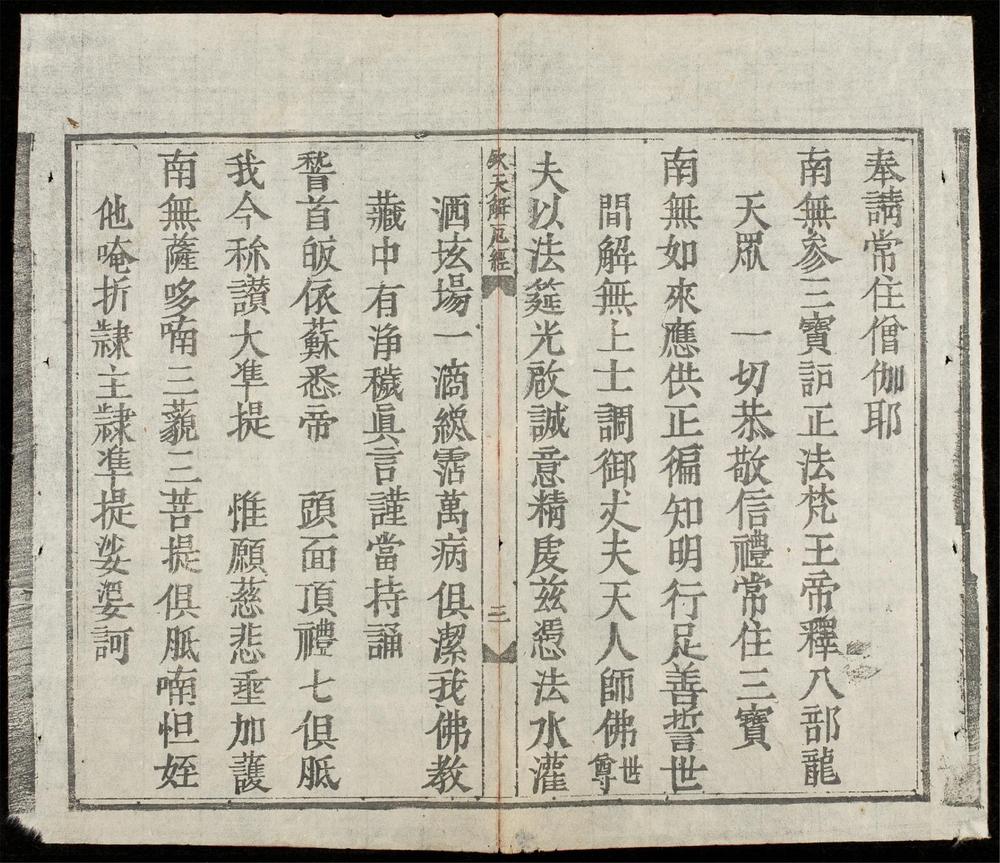 奉請常住僧伽耶
南無參三寶䛠正法梵王帝釋八部龍
天眾　一切恭敬信禮常住三寶
南無如來應供正徧知明行足善誓世
間解無上士調御丈夫天人師佛世尊
夫以法筵光啟誠意精虔茲憑法水灌
欽天解厄經
三
洒垓場一滴緫霑萬病俱潔我佛教
藏中有浄穢真言謹當持誦
稽首皈依蘇悉帝　頭面頂禮七俱胝
我今称讃大準提　惟願慈悲垂加護
南無薩哆喃三藐三菩提俱胝喃怛姪
他唵折隷主隷準提娑婆訶